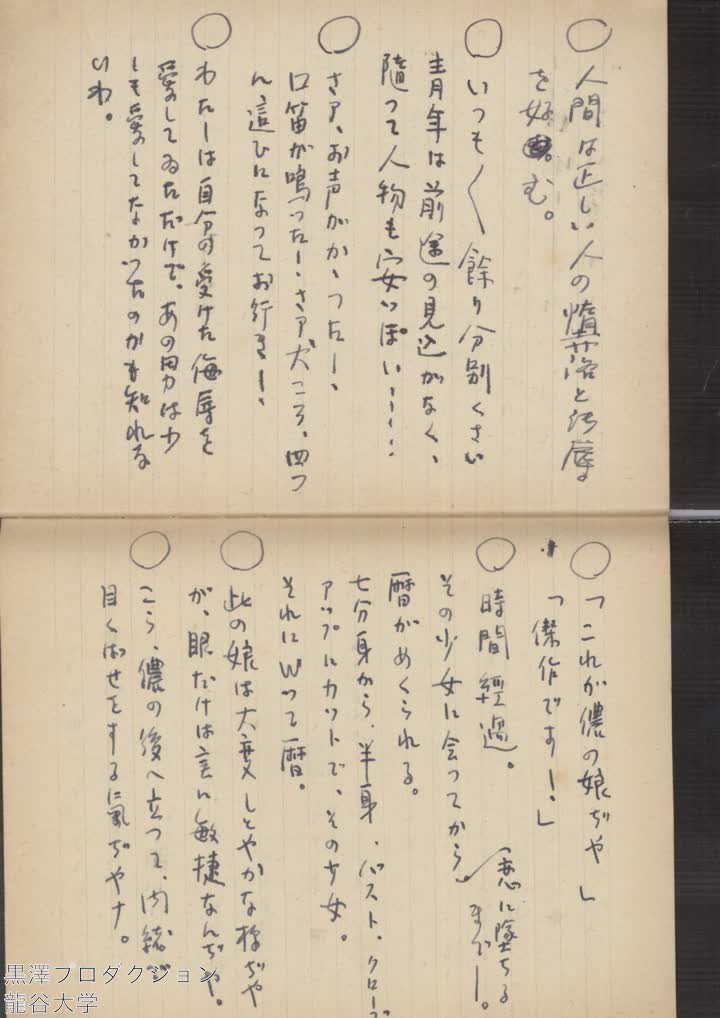 ○ 人間は正しい人の墮落と汚辱
を好む。
○ いつも〱餘り分別くさい
青年は前途の見込がなく、
隨つて人物も安つぽい‥‥
○ さア、お声がかゝつた!、
口笛が鳴つた!、さア犬ころ、四つ
ん這ひになつてお行き!、
○ わたしは自分の受けた侮辱を
愛してゐただけで、あの男は少
しも愛してなかつたのかも知れな
いわ。
○ 「これが儂の娘ぢや」
「傑作です!」
○ 時間經過。
その少女に会つてから
(恋に墜ちるまで)。
暦がめくられる。
七分身から、半身、バスト、クローズ
アップにカットで、その少女。
それにWつて暦。
○ 此の娘は大変しとやかな様ぢや
が、眼だけは実に敏捷なんぢや。
○ こら、儂の後へ立つて、内緒で
目くばせをするに氣ぢやナ。
黒澤プロダクション
龍谷大学